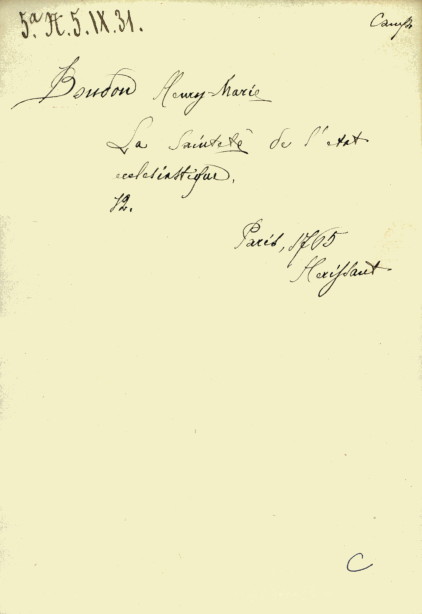 5.ª A. 5. IX. 31.
Camp
Boudon Henry-Marie
La Sainteté de l'etat
ecclesiastique.
12.
Paris, 1765
Herissant
C